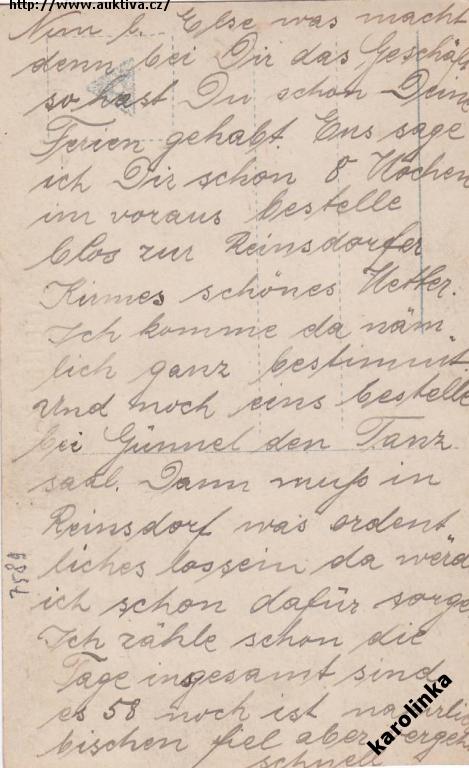 https://www.auktiva.cz/
Nun l. Else was macht
denn bei Dir das Geschäf
so hast Du schon Deine
Ferien gehabt. Eins sage
ich Dir schon 8 Wochen
im voraus bestelle
blos zur Reinsdorfer
Kirmes schönes Wetter.
Ich komme da näm
lich ganz bestimmt.
Und noch eins bestelle
bei Günnel den Tanz
saal. Dann muß in
Reinsdorf was ordent
liches lossein da werd
ich schon dafür sorge
Ich zähle schon die
Tage ingesamt sind
es 58 noch ist natürlic
bischen fiel aber verget
schnell
7589
karolinka